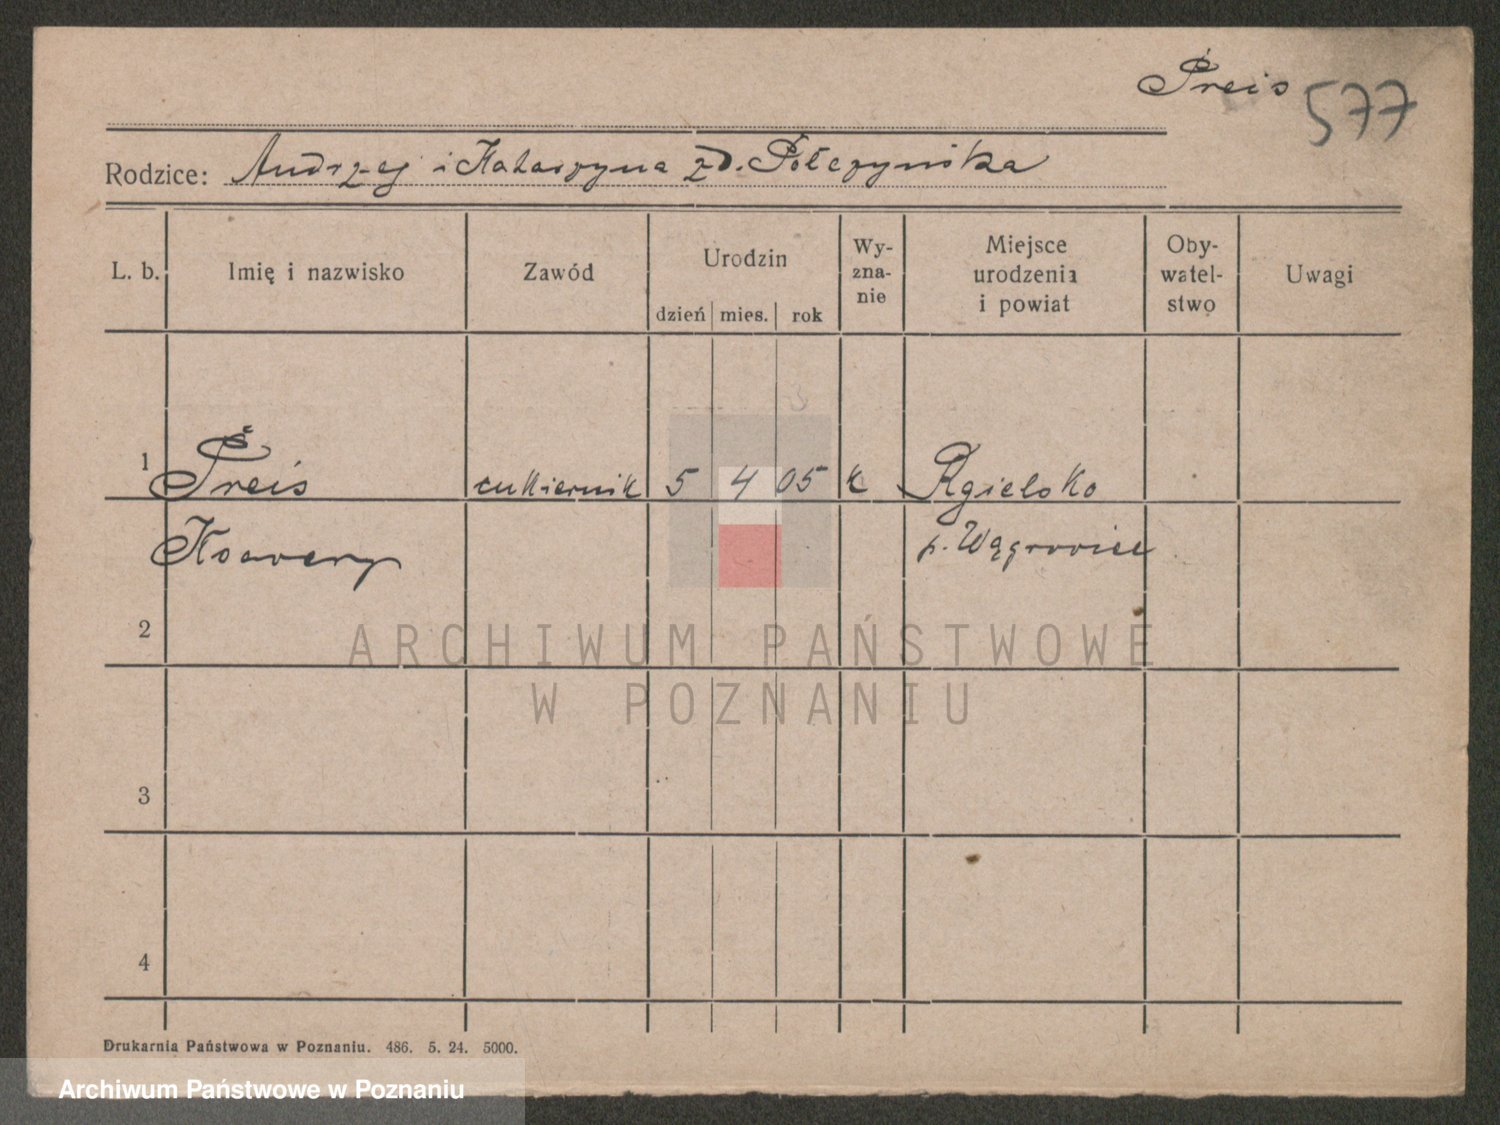 Preis 577
Rodzice: Andrzej i Katarzyna zd. Połczyńska
L. b. Imię i nazwisko Zawód Urodzin Wy-zna-nie Miejsce urodzenia i powiat Oby-watel-stwo Uwagi
dzień mies. rok
1 Preis cukiernik 5 4 05 k Rgielsko
Ksawery p. Wągrowiec
2
3
4
ARCHIWUM PAŃSTWOWE
W POZNANIU
Drukarnia Państwowa w Poznaniu. 486. 5. 24. 5000.
Archiwum Państwowe w Poznaniu